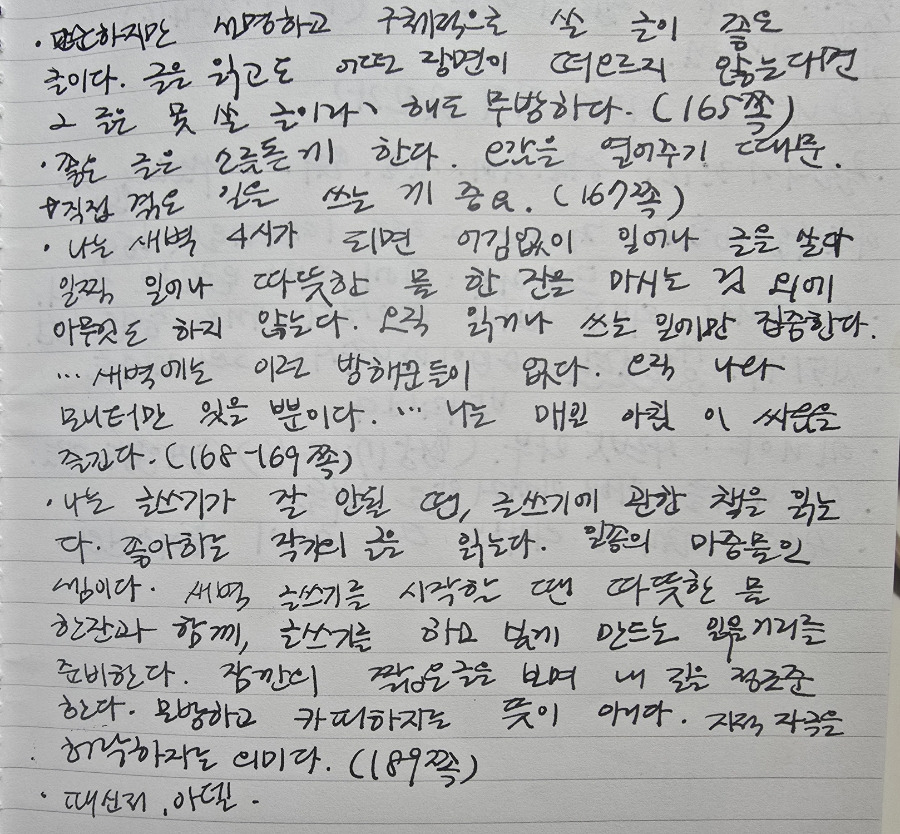 · 단순하지만 선명하고 구체적으로 쓴 글이 좋은
출이다. 글을 읽고도 어떤 장면이 떠오르지 않는다면
그 글은 못 쓴 글이라, 해도 무방하다. (165쪽)
· 좋은 글은 소름돋게 한다. 오감을 열어주기 때문.
→직접 겪은 일을 쓰는 게 중요. (167쪽)
· 나는 새벽 4시가 되면 어김없이 일어나 글을 쓴다
일찍 일어나 따뜻한 물 한 잔을 마시는 것 외에
아무것도 하지 않는다. 오직 읽거나 쓰는 일에만 집중한다.
… 새벽에는 이런 방해꾼들이 없다. 오직 나와
모니터만 있을 뿐이다. … 나는 매일 아침 이 싸움을
즐긴다. (168-169쪽)
· 나는 글쓰기가 잘 안될 땐, 글쓰기에 관한 책을 읽는
다. 좋아하는 작가의 글을 읽는다. 일종의 마중물인
셈이다. 새벽 글쓰기를 시작할 땐 따뜻한 물
한잔과 함께, 글쓰기를 하고 싶게 만드는 읽을거리를
준비한다. 잠깐의 짧은글을 보며 내 길을 정조준
한다. 모방하고 카피하자는 뜻이 아니다. 지적 자극을
허락하자는 의미다. (189쪽)